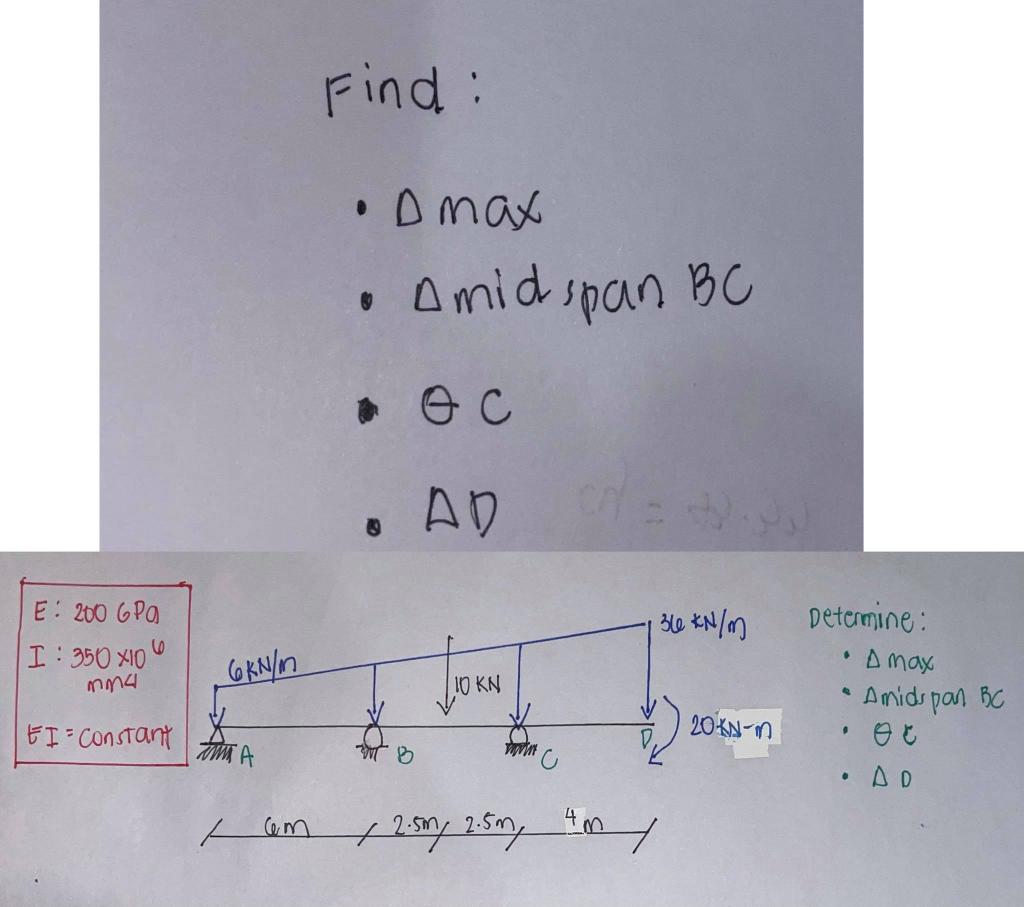 Find :
• Δ max
• Δ mid span BC
• θ C
• ΔD
E : 200 GPa
I : 350 x10 6
mm4
EI = constant
6 KN/m
10 KN
36 KN/m
20 KN-m
A
B
C
D
6m
2.5m
2.5m
4 m
Determine :
• Δ max
• Δmidspan BC
• θ C
• Δ D